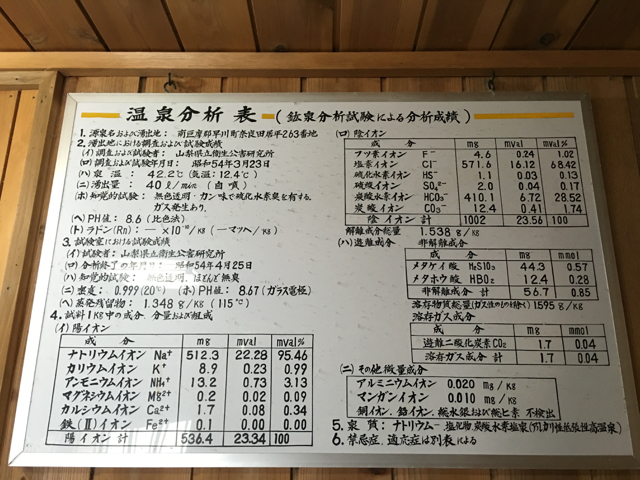 温泉分析表 (鉱泉分析試験による分析成績)
1. 源泉名および湧出地: 南巨摩郡早川町奈良田居平263番地
2. 湧出地における調査および試験成績
(イ) 調査および試験者: 山梨県立衛生公害研究所
(ロ) 調査および試験年月日: 昭和54年3月23日
(ハ) 泉温: 42.2℃ (気温: 12.4℃)
(ニ) 湧出量: 40 ℓ/min (自噴)
(ホ) 知覚的試験: 無色透明・カン味で硫化水素臭を有する。
ガス発生あり。
(ヘ) PH値: 8.6 (比色法)
(ト) ラドン(Rn):
3. 試験室における試験成績
(イ) 試験者: 山梨県立衛生公害研究所
(ロ) 分析終了の年月日: 昭和54年4月25日
(ハ) 知覚的試験: 無色透明、ほとんど無臭
(ニ) 密度: 0.999 (20℃) (ホ) PH値: 8.67 (ガラス電極)
(ヘ) 蒸発残留物: 1.348 g/Kg (115℃)
4. 試料1Kg中の成分、分量および組成
(イ) 陽イオン
成分 mg mval mval%
ナトリウムイオン Na⁺ 512.3 22.28 95.46
カリウムイオン K⁺ 8.9 0.23 0.99
アンモニウムイオン NH₄⁺ 13.2 0.73 3.13
マグネシウムイオン Mg²⁺ 0.2 0.02 0.09
カルシウムイオン Ca²⁺ 1.7 0.08 0.34
鉄(Ⅱ)イオン Fe²⁺ 0.1 0.00 0.00
陽イオン計 536.4 23.34 100
(ロ) 陰イオン
成分 mg mval mval%
フッ素イオン F⁻ 4.6 0.24 1.02
塩素イオン Cl⁻ 571.6 16.12 68.42
硫化水素イオン HS⁻ 1.1 0.03 0.13
硫酸イオン SO₄²⁻ 2.0 0.04 0.17
炭酸水素イオン HCO₃⁻ 410.1 6.72 28.52
炭酸イオン CO₃²⁻ 12.4 0.41 1.74
陰イオン計 1002 23.56 100
解離成分総量 1.538 g/Kg
(ハ) 遊離成分 非解離成分
成分 mg mmol
メタケイ酸 H₂SiO₃ 44.3 0.57
メタホウ酸 HBO₂ 12.4 0.28
非解離成分計 56.7 0.85
溶存物質総量(ガス性のものを除く) 1.595 g/Kg
溶存ガス成分
成分 mg mmol
遊離二酸化炭素CO₂ 1.7 0.04
溶存ガス成分計 1.7 0.04
(ニ) その他微量成分
アルミニウムイオン 0.020 mg/Kg
マンガンイオン 0.010 mg/Kg
銅イオン、鉛イオン、総水銀および総ヒ素 不検出
5. 泉質: ナトリウム-塩化物、炭酸水素塩泉(アルカリ性低張性高温泉)
6. 禁忌症、適応症は別表による